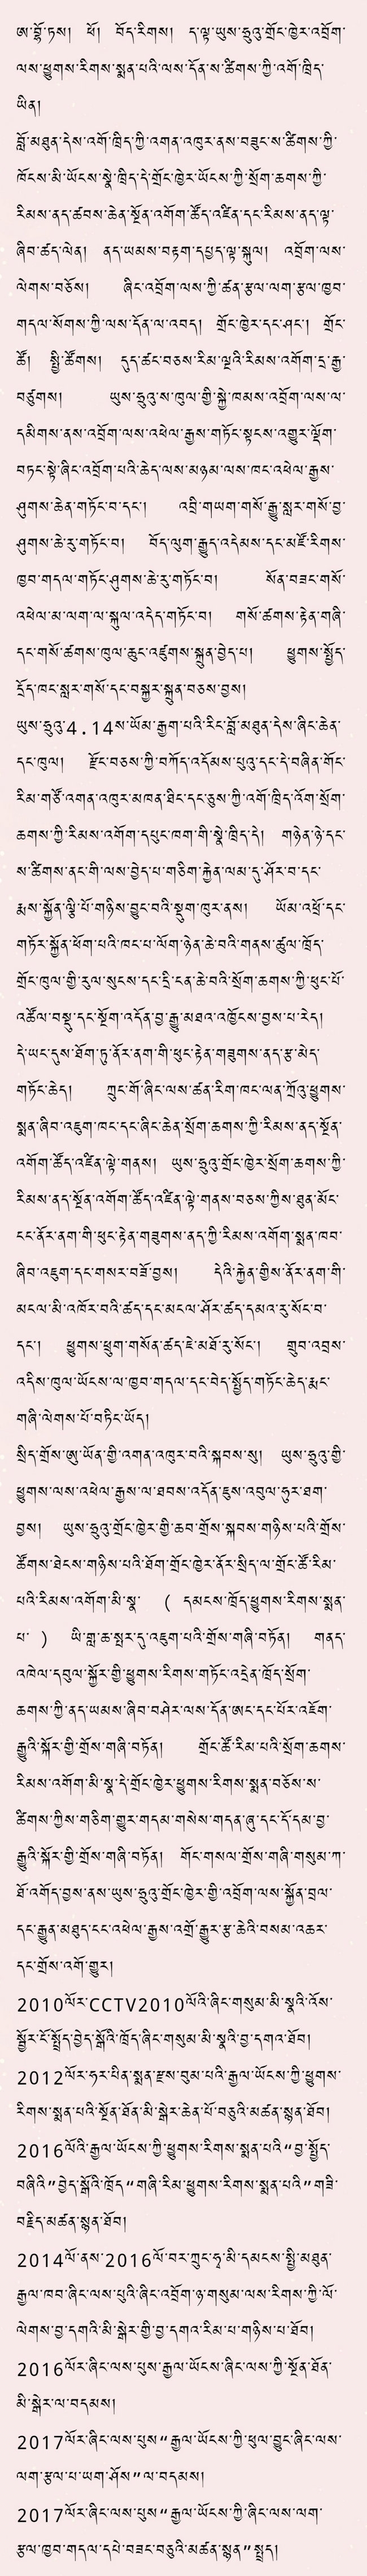 ཨ་བློ་ཏས།  ཕོ།  བོད་རིགས།  ད་ལྟ་ཡུས་ཧྲུའུ་གྲོང་ཁྱེར་འབྲོག་
ལས་ཕྱུགས་རིགས་སྨན་པའི་ལས་དོན་ས་ཚིགས་ཀྱི་འགོ་ཁྲིད་
ཡིན།
བློ་མཐུན་དེས་འགོ་ཁྲིད་ཀྱི་འགན་འཁུར་ནས་བཟུང་ས་ཚིགས་ཀྱི་
ཁོངས་མི་ཡོངས་སྣེ་ཁྲིད་དེ་གྲོང་ཁྱེར་ཡོངས་ཀྱི་སྲོག་ཆགས་ཀྱི་
རིམས་ནད་ཚབས་ཆེན་སྔོན་འགོག་ཚོད་འཛིན་དང་རིམས་ནད་ལྟ་
ཞིབ་ཚད་ལེན།  ནད་ཡམས་བརྟག་དཔྱད་ལྟ་སྐུལ།  འབྲོག་ལས་
ལེགས་བཅོས།  ཞིང་འབྲོག་ལས་ཀྱི་ཚན་རྩལ་ལག་རྩལ་ཁྱབ་
གདལ་སོགས་ཀྱི་ལས་དོན་ལ་འབད།  གྲོང་ཁྱེར་དང་ཤང་།  གྲོང་
ཚོ།  སྤྱི་ཚོགས།  དུད་ཚང་བཅས་རིམ་ལྔའི་རིམས་འགོག་དྲ་རྒྱ་
བཙུགས།  ཡུས་ཧྲུའུ་ས་ཁུལ་གྱི་སྐྱེ་ཁམས་འབྲོག་ལས་ལ་
དམིགས་ནས་འབྲོག་ལས་འཕེལ་རྒྱས་གཏོང་སྟངས་འགྱུར་ལྡོག་
བཏང་སྟེ་ཞིང་འབྲོག་པའི་ཆེད་ལས་མཉམ་ལས་ཁང་འཕེལ་རྒྱས་
ཤུགས་ཆེན་གཏོང་བ་དང་།  འབྲི་གཡག་གསོ་རྒྱུ་སླར་གསོ་བྱ་
ཤུགས་ཆེ་རུ་གཏོང་བ།  བོད་ལུག་རྒྱུད་འདེམས་དང་མཛོ་རིགས་
ཁྱབ་གདལ་གཏོང་ཤུགས་ཆེ་རུ་གཏོང་བ།  སོན་བཟང་གསོ་
འཕེལ་མ་ལག་ལ་སྐུལ་འདེད་གཏོང་བ།  གསོ་ཚགས་རྟེན་གཞི་
དང་གསོ་ཚགས་ཁུལ་ཆུང་འཛུགས་སྐྲུན་བྱེད་པ།  ཕྱུགས་སྤྱོད་
དྲོད་ཁང་སླར་གསོ་དང་བསྐྱར་སྐྲུན་བཅས་བྱས།
ཡུས་ཧྲུའུ་4.14ས་ཡོམ་རྒྱག་པའི་རིང་བློ་མཐུན་དེས་ཞིང་ཆེན་
དང་ཁུལ།  རྫོང་བཅས་ཀྱི་བཀོད་འདོམས་པུའུ་དང་དེ་བཞིན་གོང་
རིམ་གཙོ་འགན་འཁུར་མཁན་ཐིང་དང་ཅུས་ཀྱི་འགོ་ཁྲིད་འོག་སྲོག་
ཆགས་ཀྱི་རིམས་འགོག་དཔུང་ཁག་གི་སྣེ་ཁྲིད་དེ།  གཉེན་ཉེ་དང་
ས་ཚིགས་ནང་གི་ལས་བྱེད་པ་གཅིག་རྐྱེན་ལམ་དུ་ཤོར་བ་དང་
རྨས་སྐྱོན་ལྕི་པོ་གཉིས་བྱུང་བའི་སྡུག་ཁུར་ནས།  ཡོམ་འཕྲོ་དང་
གཏོར་སྐྱོན་ཕོག་པའི་ཁང་པ་ལོག་ཉེན་ཆེ་བའི་གནས་ཚུལ་ཁྲོད་
གྲོང་ཁུལ་གྱི་རུལ་སུངས་དང་དྲི་ངན་ཆེ་བའི་སྲོག་ཆགས་ཀྱི་ཕུང་པོ་
འཚོལ་བསྡུ་དང་སྔོག་འདོན་བྱ་རྒྱུ་མཐའ་འཁྱོངས་བྱས་པ་རེད།
དེ་ཡང་དུས་ཐོག་ཏུ་ནོར་ནག་གི་ཕུང་རྟེན་གཟུགས་ནད་རྩ་མེད་
གཏོང་ཆེད།  ཀྲུང་གོ་ཞིང་ལས་ཚན་རིག་ཁང་ལན་ཀྲོའུ་ཕྱུགས་
སྨན་ཞིབ་འཇུག་ཁང་དང་ཞིང་ཆེན་སྲོག་ཆགས་ཀྱི་རིམས་ནད་སྔོན་
འགོག་ཚོད་འཛིན་ལྟེ་གནས།  ཡུས་ཧྲུའུ་གྲོང་ཁྱེར་སྲོག་ཆགས་ཀྱི་
རིམས་ནད་སྔོན་འགོག་ཚོད་འཛིན་ལྟེ་གནས་བཅས་ཀྱིས་ཐུན་མོང་
ངང་ནོར་ནག་གི་ཕུང་རྟེན་གཟུགས་ནད་ཀྱི་རིམས་འགོག་སྨན་ཁབ་
ཞིབ་འཇུག་དང་གསར་བཟོ་བྱས།  དེའི་རྐྱེན་གྱིས་ནོར་ནག་གི་
མངལ་མི་འཁོར་བའི་ཚད་དང་མངལ་ཤོར་ཚད་དམའ་རུ་སོང་བ་
དང་།  ཕྱུགས་ཕྲུག་གསོན་ཚད་ཇེ་མཐོ་རུ་སོང་།  གྲུབ་འབྲས་
འདིས་ཁུལ་ཡོངས་ལ་ཁྱབ་གདལ་དང་བེད་སྤྱོད་གཏོང་ཆེད་རྨང་
གཞི་ལེགས་པོ་བཏིང་ཡོད།
སྲིད་གྲོས་ཨུ་ཡོན་གྱི་འགན་འཁུར་བའི་སྐབས་སུ།  ཡུས་ཧྲུའུ་གྱི་
ཕྱུགས་ལས་འཕེལ་རྒྱས་ལ་ཐབས་འདོན་ཇུས་འབུལ་ཧུར་ཐག་
བྱས།  ཡུས་ཧྲུའུ་གྲོང་ཁྱེར་གྱི་ཆབ་གྲོས་སྐབས་གཉིས་པའི་གྲོས་
ཚོགས་ཐེངས་གཉིས་པའི་ཐོག་གྲོང་ཁྱེར་ནོར་སྲིད་ལ་གྲོང་ཚོ་རིམ་
པའི་རིམས་འགོག་མི་སྣ་ ( དམངས་ཁྲོད་ཕྱུགས་རིགས་སྨན་
པ་ ) ཡི་གླ་ཆ་སྤར་དུ་འཇུག་པའི་གྲོས་གཞི་བཏོན།  གནད་
འཁེལ་དབུལ་སྐྱོར་གྱི་ཕྱུགས་རིགས་གཏོང་འདྲེན་ཁྲོད་སྲོག་
ཆགས་ཀྱི་ནད་ཡམས་ཞིབ་བཤེར་ལས་དོན་ཨང་དང་པོར་འཇོག་
རྒྱུའི་སྐོར་གྱི་གྲོས་གཞི་བཏོན།  གྲོང་ཚོ་རིམ་པའི་སྲོག་ཆགས་
རིམས་འགོག་མི་སྣ་དེ་གྲོང་ཁྱེར་ཕྱུགས་རིགས་སྨན་བཅོས་ས་
ཚིགས་ཀྱིས་གཅིག་གྱུར་གདམ་གསེས་གདན་ཞུ་དང་དོ་དམ་བྱ་
རྒྱུའི་སྐོར་གྱི་གྲོས་གཞི་བཏོན།  གོང་གསལ་གྲོས་གཞི་གསུམ་ཀ་
ཐོ་འགོད་བྱས་ནས་ཡུས་ཧྲུའུ་གྲོང་ཁྱེར་གྱི་འབྲོག་ལས་སྐྱོན་བྲལ་
དང་རྒྱུན་མཐུད་ངང་འཕེལ་རྒྱས་འགྲོ་རྒྱུར་རྩ་ཆེའི་བསམ་འཆར་
དང་གྲོས་འགོ་གྱུར།
2010ལོར་CCTV2010ལོའི་ཞིང་གསུམ་མི་སྣའི་འོས་
སྦྱོར་ངོ་སྤྲོད་བྱེད་སྒོའི་ཁྲོད་ཞིང་གསུམ་མི་སྣའི་བྱ་དགའ་ཐོབ།
2012ལོར་ཧར་པིན་སྨན་རྫས་བུམ་པའི་རྒྱལ་ཡོངས་ཀྱི་ཕྱུགས་
རིགས་སྨན་པའི་སྔོན་ཐོན་མི་སྒེར་ཆེན་པོ་བཅུའི་མཚན་སྙན་ཐོབ།
2016ལོའི་རྒྱལ་ཡོངས་ཀྱི་ཕྱུགས་རིགས་སྨན་པའི“བྱ་སྤྱོད་
བཞིའི”བྱེད་སྒོའི་ཁྲོད“གཞི་རིམ་ཕྱུགས་རིགས་སྨན་པའི”གཟི་
བརྗིད་མཚན་སྙན་ཐོབ།
2014ལོ་ནས་2016ལོ་བར་ཀྲུང་ཧྭ་མི་དམངས་སྤྱི་མཐུན་
རྒྱལ་ཁབ་ཞིང་ལས་པུའི་ཞིང་འབྲོག་ཉ་གསུམ་ལས་རིགས་ཀྱི་ལོ་
ལེགས་བྱ་དགའི་མི་སྒེར་གྱི་བྱ་དགའ་རིམ་པ་གཉིས་པ་ཐོབ།
2016ལོར་ཞིང་ལས་པུས་རྒྱལ་ཡོངས་ཞིང་ལས་ཀྱི་སྔོན་ཐོན་
མི་སྒེར་ལ་བདམས།
2017ལོར་ཞིང་ལས་པུས“རྒྱལ་ཡོངས་ཀྱི་ཕུལ་བྱུང་ཞིང་ལས་
ལག་རྩལ་པ་ཡག་ཤོས”ལ་བདམས།
2017ལོར་ཞིང་ལས་པུས“རྒྱལ་ཡོངས་ཀྱི་ཞིང་ལས་ལག་
རྩལ་ཁྱབ་གདལ་དཔེ་བཟང་བཅུའི་མཚན་སྙན”སྤྲད།